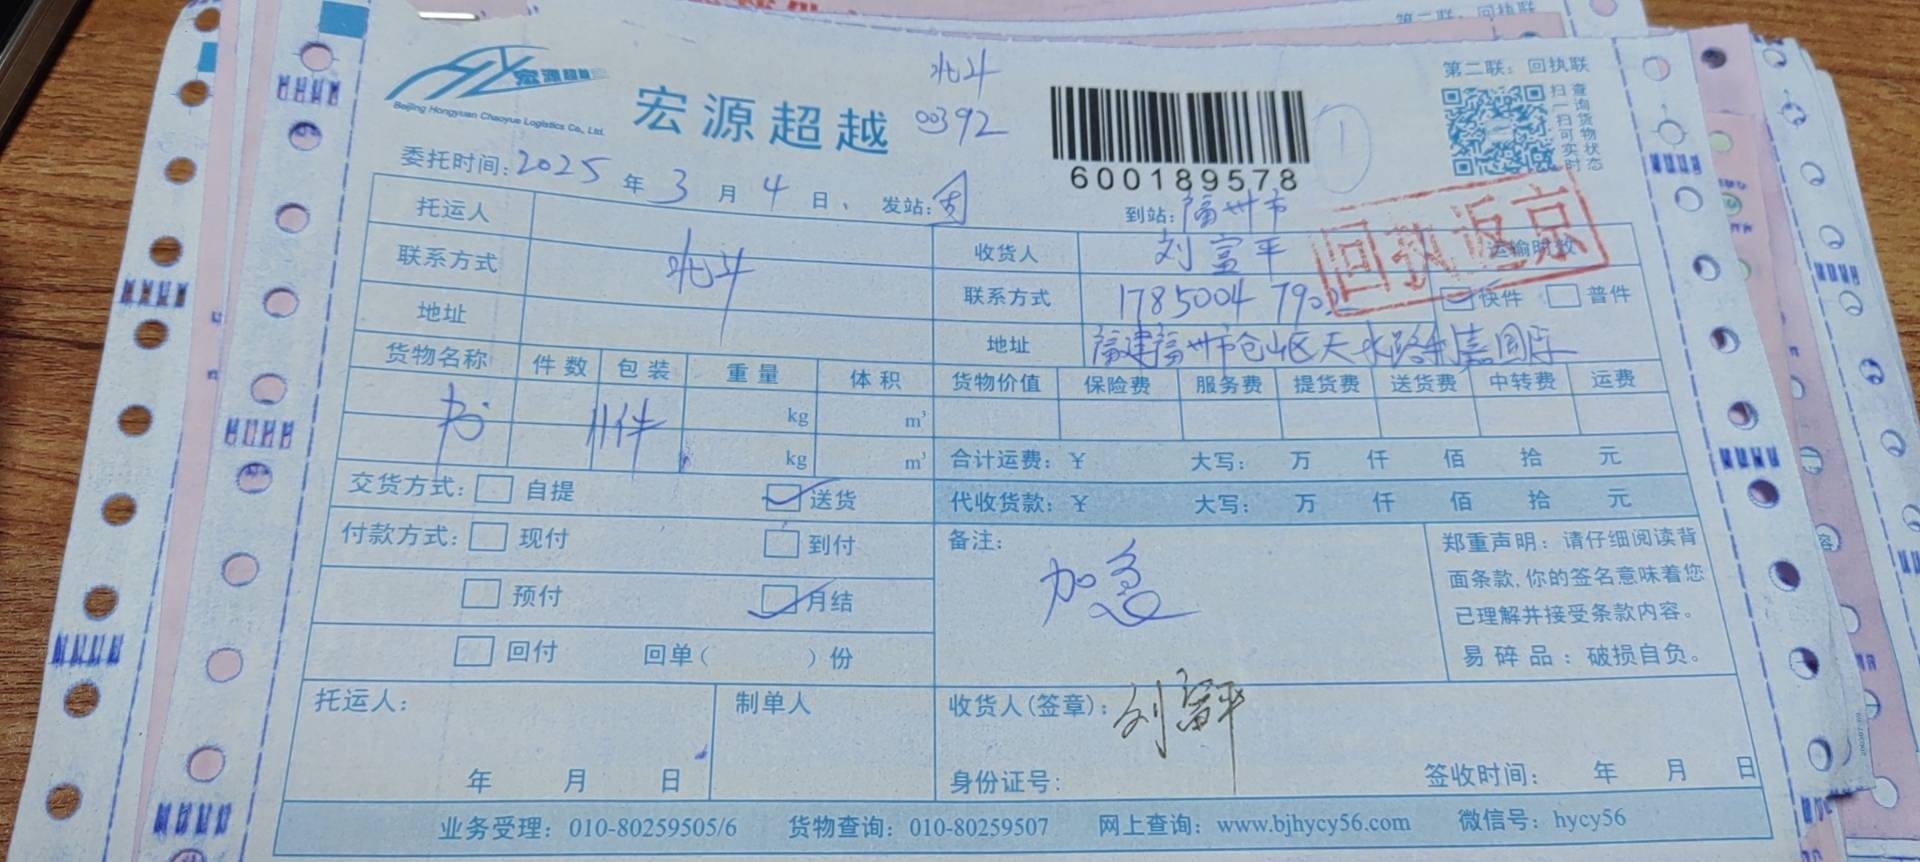 第二联：回执联
宏源超越
Beijing Hongyuan Chaoyue Logistics Co., Ltd.
宏源超越
北斗
00392
600189578
扫一扫可实时
查询货物状态
委托时间：2025 年 3 月 4 日、 发站： 到站：福州市
回执返京
托运人
北斗
收货人 刘富平 运输时效
联系方式
联系方式 1785004 快件 普件
地址
地址 福建福州市仓山区天水路 国际
货物名称 件数 包装 重量 体积 货物价值 保险费 服务费 提货费 送货费 中转费 运费
书 11件 kg m³
kg m³ 合计运费：¥ 大写： 万 仟 佰 拾 元
交货方式： 自提 送货 代收货款：¥ 大写： 万 仟 佰 拾 元
付款方式： 现付 到付
预付 月结
回付 回单（ ）份
备注：
加急
郑重声明：请仔细阅读背
面条款,你的签名意味着您
已理解并接受条款内容。
易碎品：破损自负。
托运人： 制单人 收货人(签章)：刘富平
年 月 日 身份证号： 签收时间： 年 月 日
业务受理：010-80259505/6 货物查询：010-80259507 网上查询：www.bjhycy56.com 微信号：hycy56